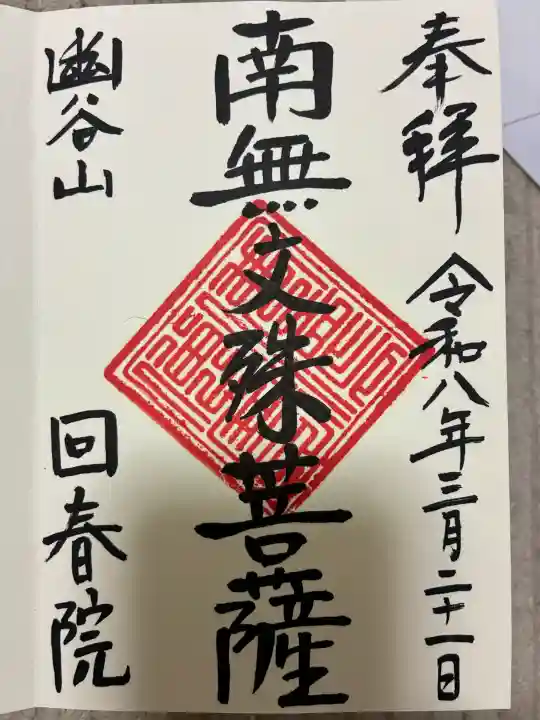 奉拝
令和八年三月二十一日
南無文殊菩薩
幽谷山
回春院